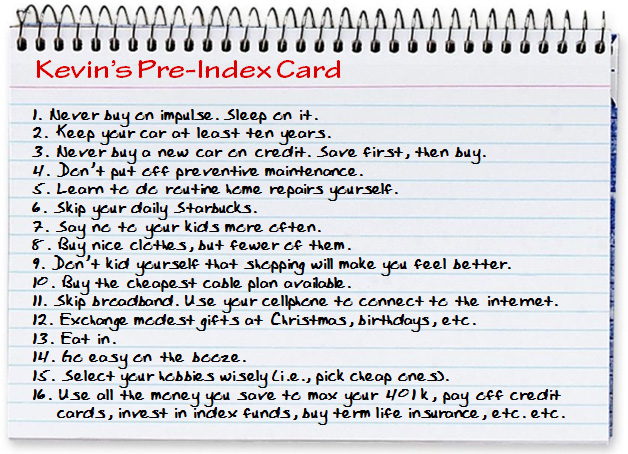 Kevin's Pre-Index Card
1. Never buy on impulse. Sleep on it.
2. Keep your car at least ten years.
3. Never buy a new car on credit. Save first, then buy.
4. Don't put off preventive maintenance.
5. Learn to do routine home repairs yourself.
6. Skip your daily Starbucks.
7. Say no to your kids more often.
8. Buy nice clothes, but fewer of them.
9. Don't kid yourself that shopping will make you feel better.
10. Buy the cheapest cable plan available.
11. Skip broadband. Use your cellphone to connect to the internet.
12. Exchange modest gifts at Christmas, birthdays, etc.
13. Eat in.
14. Go easy on the booze.
15. Select your hobbies wisely (i.e., pick cheap ones).
16. Use all the money you save to max your 401k, pay off credit
cards, invest in index funds, buy term life insurance, etc. etc.